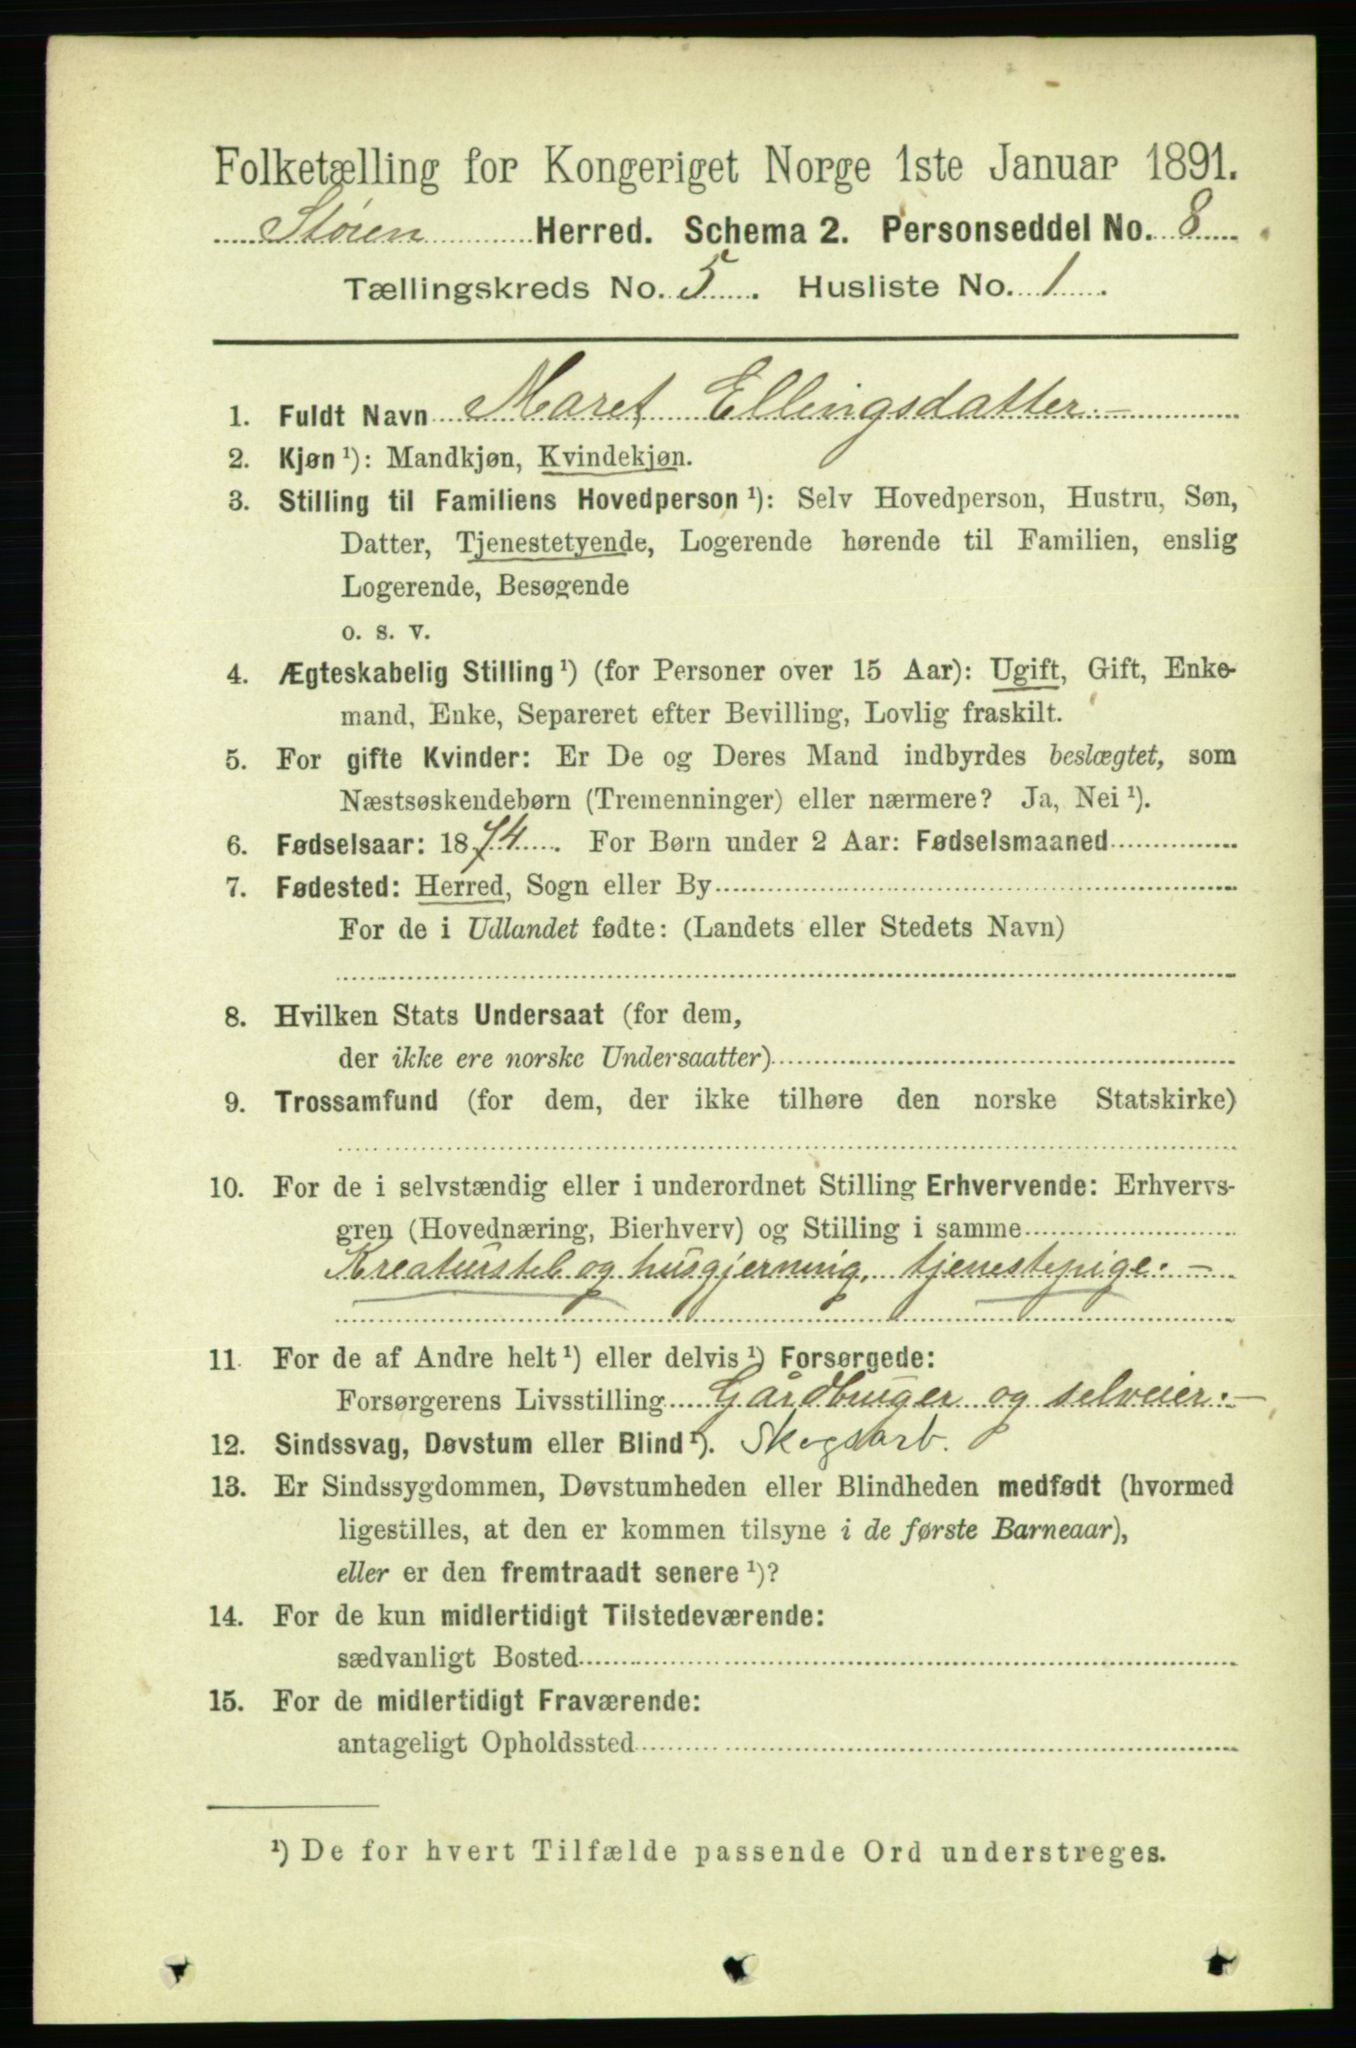 Folketælling for Kongeriget Norge 1ste Januar 1891.
Støren Herred. Schema 2. Personseddel No. 8
Tællingskreds No. 5. Husliste No. 1.
1. Fuldt Navn Maret Ellingsdatter. —
2. Kjøn ¹): Mandkjøn, Kvindekjøn.
3. Stilling til Familiens Hovedperson ¹): Selv Hovedperson, Hustru, Søn,
Datter, Tjenestetyende, Logerende hørende til Familien, enslig
Logerende, Besøgende
o. s. v.
4. Ægteskabelig Stilling ¹) (for Personer over 15 Aar): Ugift, Gift, Enke-
mand, Enke, Separeret efter Bevilling, Lovlig fraskilt.
5. For gifte Kvinder: Er De og Deres Mand indbyrdes beslægtet, som
Næstsøskendebørn (Tremenninger) eller nærmere? Ja, Nei ¹).
6. Fødselsaar: 1874. For Børn under 2 Aar: Fødselsmaaned
7. Fødested: Herred, Sogn eller By
For de i Udlandet fødte: (Landets eller Stedets Navn)
8. Hvilken Stats Undersaat (for dem,
der ikke ere norske Undersaatter)
9. Trossamfund (for dem, der ikke tilhøre den norske Statskirke)
10. For de i selvstændig eller i underordnet Stilling Erhvervende: Erhvervs-
gren (Hovednæring, Bierhverv) og Stilling i samme
Kreaturstel og husgjerning, tjenestepige. —
11. For de af Andre helt ¹) eller delvis ¹) Forsørgede:
Forsørgerens Livsstilling Gårdbruger og selveier. —
12. Sindssvag, Døvstum eller Blind ¹). Skogsarb.
13. Er Sindssygdommen, Døvstumheden eller Blindheden medfødt (hvormed
ligestilles, at den er kommen tilsyne i de første Barneaar),
eller er den fremtraadt senere ¹)?
14. For de kun midlertidigt Tilstedeværende:
sædvanligt Bosted
15. For de midlertidigt Fraværende:
antageligt Opholdssted
¹) De for hvert Tilfælde passende Ord understreges.